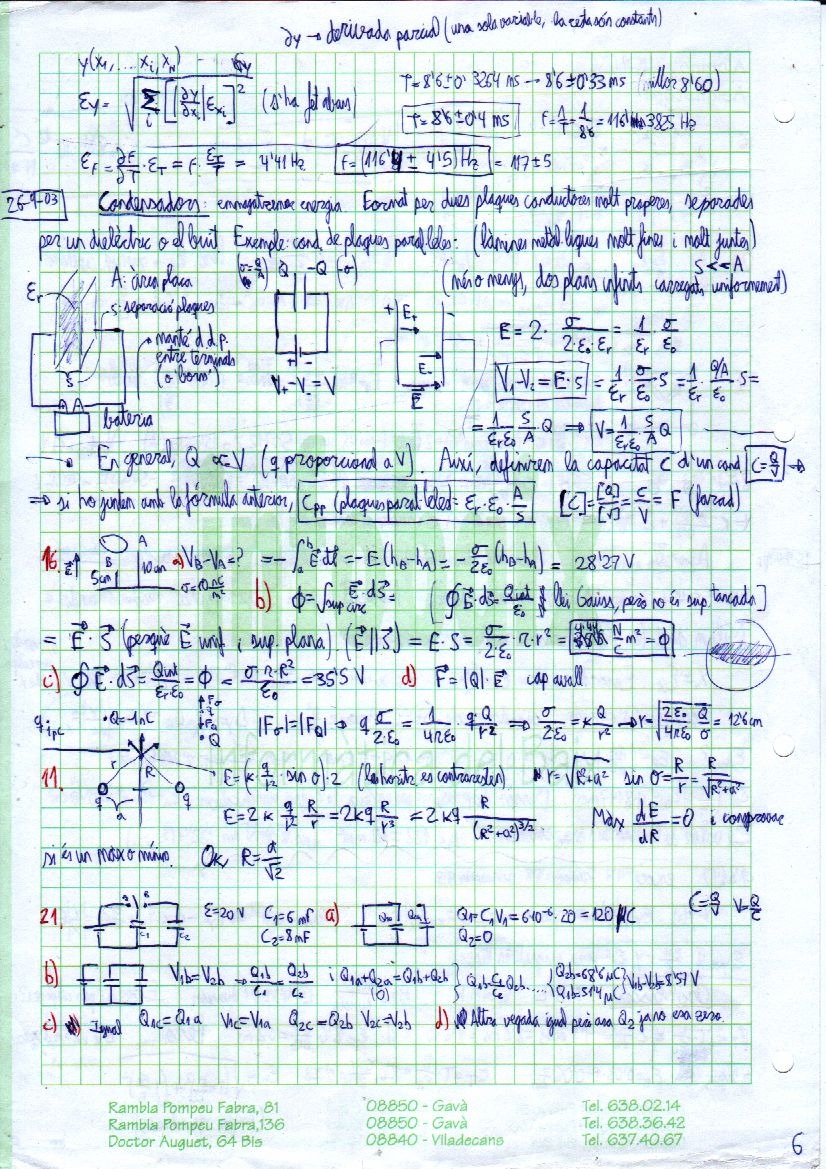 ∂y → derivada parcial (una sola variable, la resta són constants)
y(x₁, ... xᵢ, x_N)
ε_y = √(Σᵢ [(∂y/∂xᵢ) ε_xᵢ]²) (s'ha fet abans)
T = 8'6 ± 0'3264 ms → 8'6 ± 0'33 ms (millor 8'60)
T = 8'6 ± 0'4 ms f = 1/T = 1/8'6 = 116' 3825 Hz
ε_f = ∂f/∂T · ε_T = f · ε_T/T = 4'41 Hz f = (116'4 ± 4'5) Hz = 117 ± 5
26-9-03 Condensadors: emmagatzemar energia. Format per dues plaques conductores molt properes, separades
per un dielèctric o el buit. Exemple: cond. de plaques paral·leles: (làmines metàl·liques molt fines i molt juntes)
s << A
(més o menys, dos plans infinits carregats uniformement)
ε_r A: àrea placa
s: separació plaques
manté d.d.p.
entre terminals
(o borns)
s
bateria
(σ = Q/A) Q -Q (-σ)
+ -
V₊ - V₋ = V
+ E₊ -
E₋
E
E = 2 · σ/(2·ε₀·ε_r) = 1/ε_r · σ/ε₀
V₁ - V₂ = E · s = 1/ε_r · σ/ε₀ · s = 1/ε_r · (Q/A)/ε₀ · s =
= 1/(ε_r ε₀) s/A · Q ⇒ V = 1/(ε_r ε₀) s/A Q
→ En general, Q ∝ V (q proporcional a V). Així, definirem la capacitat C d'un cond C = Q/V →
⇒ si ho juntem amb la fórmula anterior, C_pp (plaques paral·leles) = ε_r · ε₀ · A/s [C] = [Q]/[V] = C/V = F (farad)
16. E↑ B 5cm A 10cm σ = 10 nC/m² a) V_B - V_A = ? = -∫ₐᵇ E dl = -E (h_B - h_A) = -σ/2ε₀ (h_B - h_A) = 28'27 V
b) Φ = ∫sup circ E · dS = [∮ E · dS = Qint/ε₀ llei Gauss, però no és sup. tancada]
= E · S (perquè E unif i sup. plana) (E || S) = E · S = σ/(2·ε₀) · π · r² = N/C m² = Φ
c) ∮ E · dS = Qint/(ε_r·ε₀) = Φ = σ·π·R²/ε₀ = 35'5 V d) F = |Q| · E cap avall
q 1 pC • Q = -1 nC
F_σ
q
F_Q
• Q
|F_σ| = |F_Q| ⇒ q σ/2ε₀ = 1/4πε₀ · qQ/r² ⇒ σ/2ε₀ = K Q/r² → r = √(2ε₀/4πε₀ Q/σ) = 12'6 cm
11. r R q a q E = (K · q/r² · sin σ) · 2 (les horitz es contraresten) r = √(R² + a²) sin σ = R/r = R/√(R² + a²)
E = 2K q/r² R/r = 2Kq R/r³ = 2Kq R/(R² + a²)^3/2 Max dE/dR = 0 i comprovar
si és un màx o mínim. Ok, R = a/√2
21. A B C₁ C₂ ε = 20 V C₁ = 6 mF C₂ = 8 mF a) Q₁ = C₁V₁ = 6·10⁻⁶ · 20 = 120 µC C = Q/V V = Q/C
Q₂ = 0
b) V₁b = V₂b → Q₁b/C₁ = Q₂b/C₂ i Q₁a + Q₂a = Q₁b + Q₂b } Q₁b = C₁/C₂ Q₂b ..... { Q₂b = 68'6 µC
(0) Q₁b = 51'4 µC } V₁b = V₂b = 8'57 V
c) Igual Q₁c = Q₁a V₁c = V₁a Q₂c = Q₂b V₂c = V₂b d) Altra vegada igual però ara Q₂ ja no era zero.
Rambla Pompeu Fabra, 81 08850 - Gavà Tel. 638.02.14
Rambla Pompeu Fabra,136 08850 - Gavà Tel. 638.36.42
Doctor Auguet, 64 Bis 08840 - Viladecans Tel. 637.40.67
6